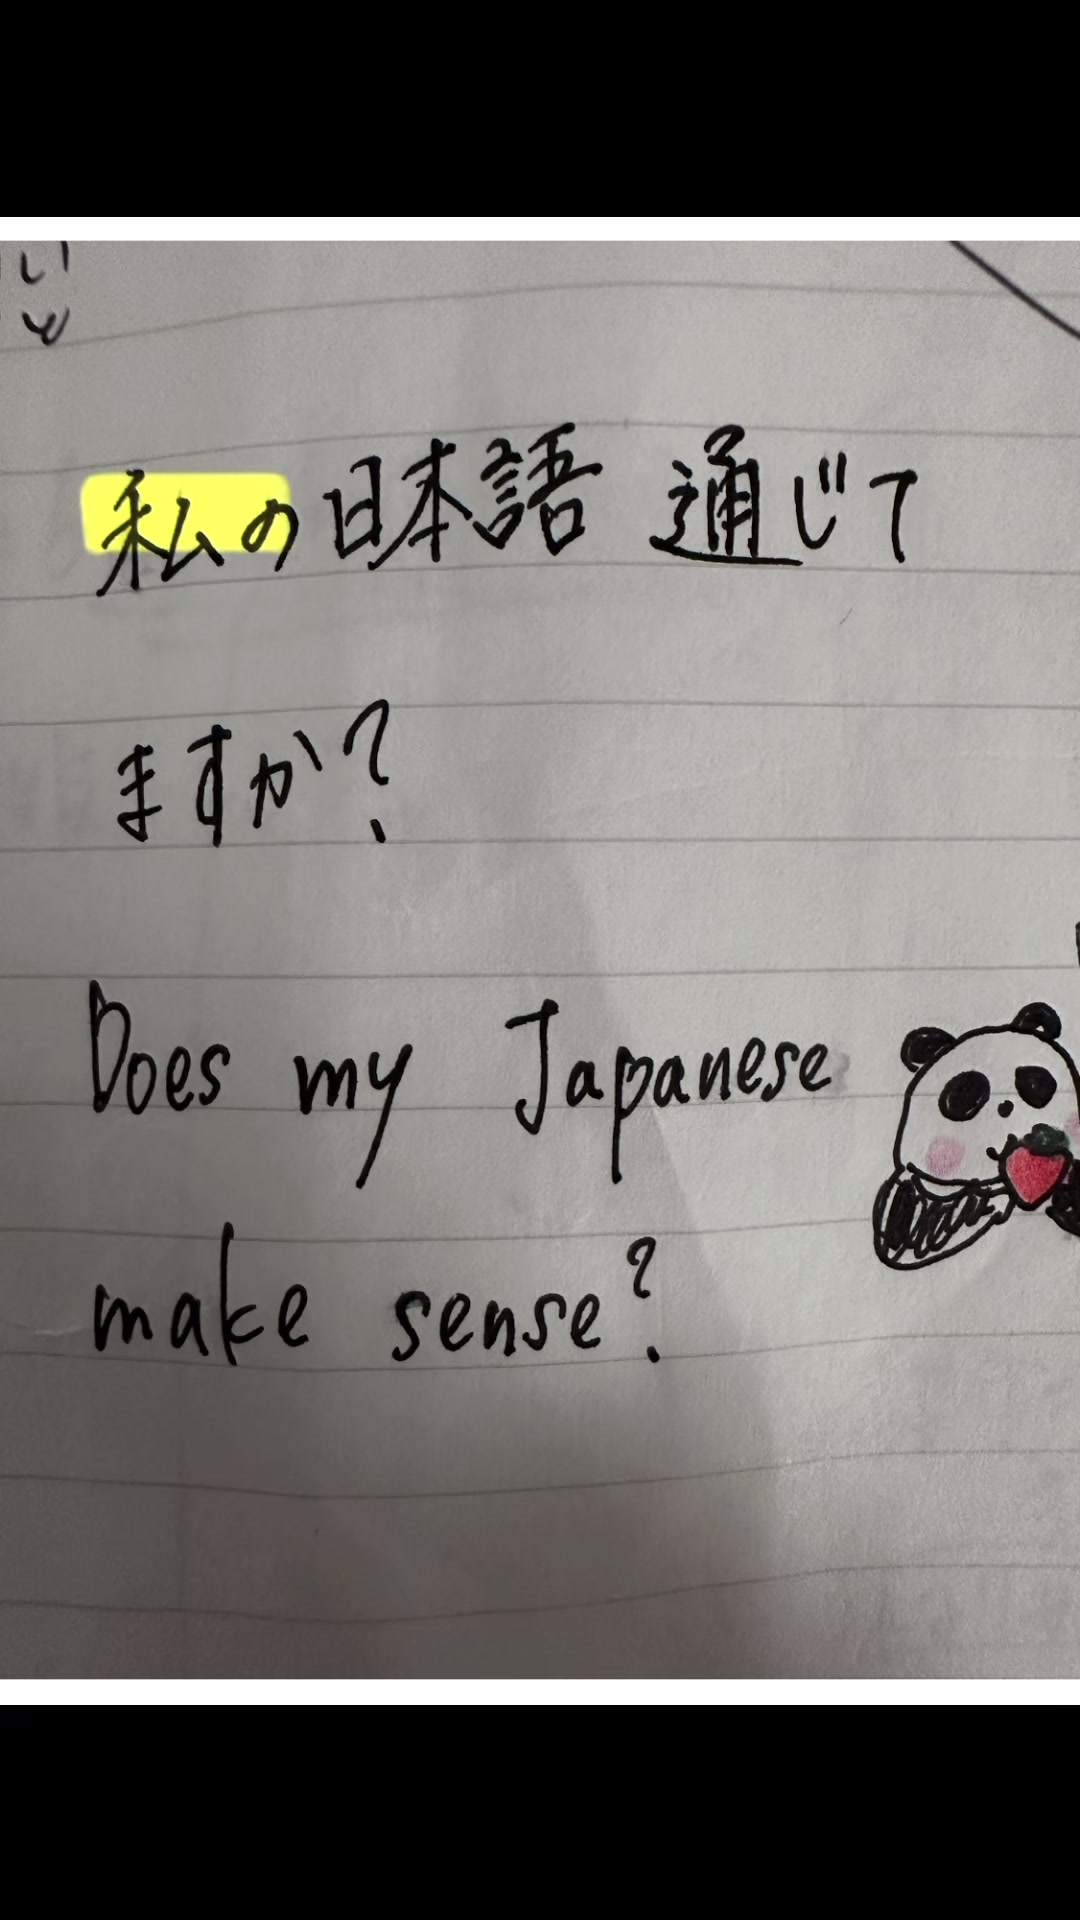 いと
私の日本語 通じて
ますか?
Does my Japanese
make sense?